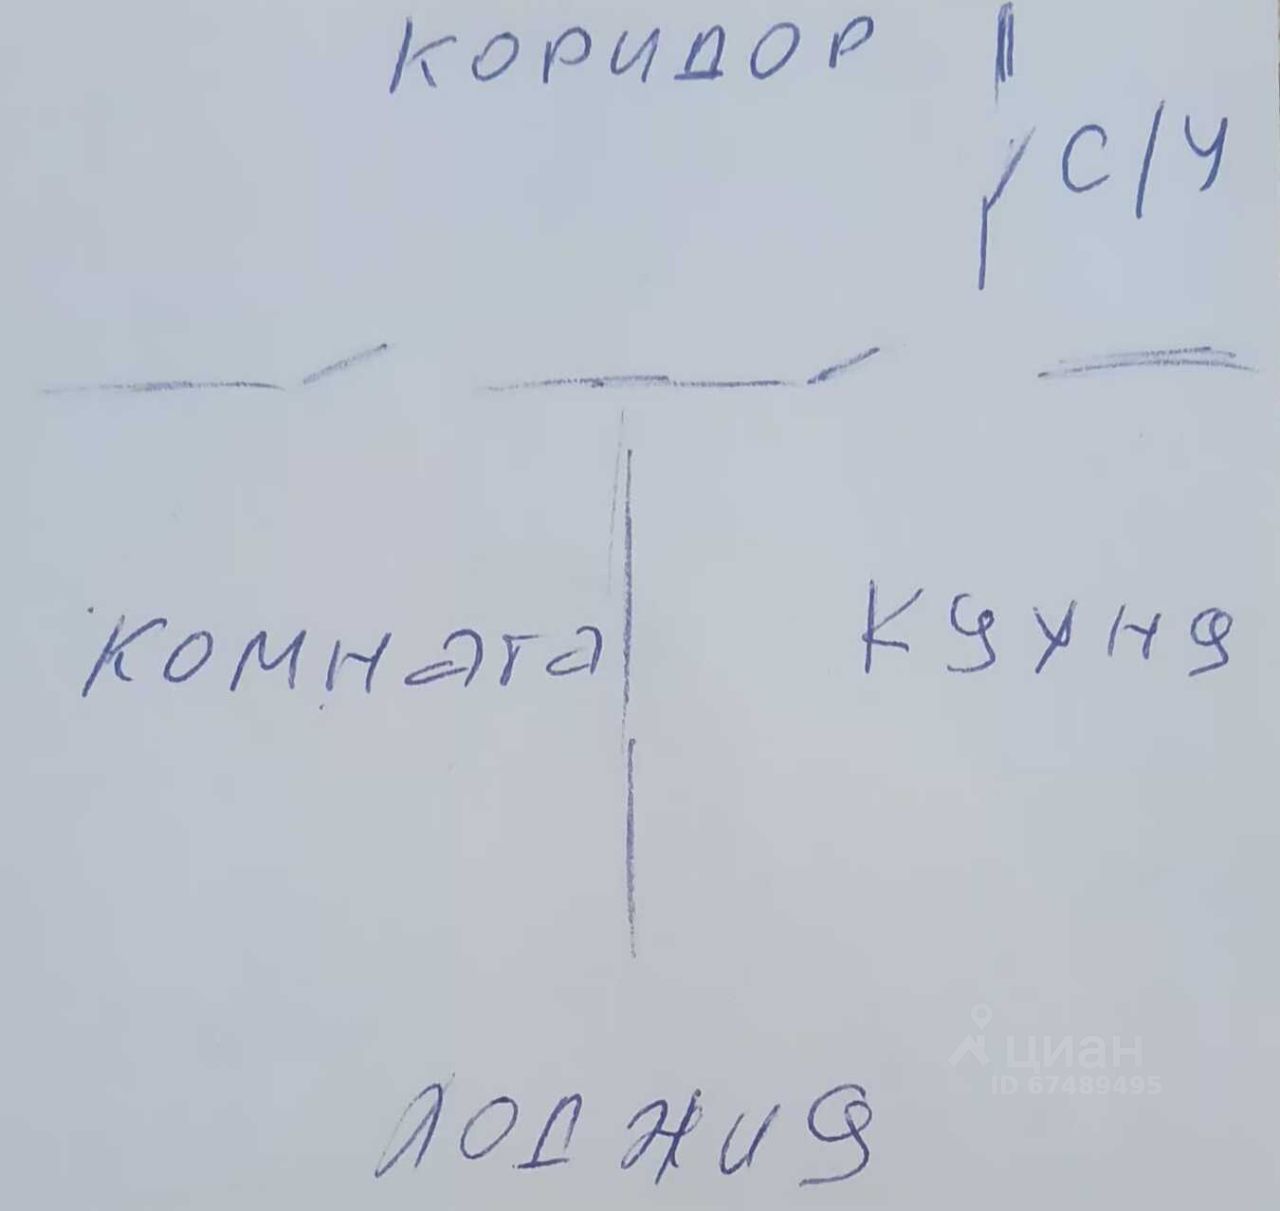 коридор
с/у
комната
кухня
лоджия
циан
ID 67489495